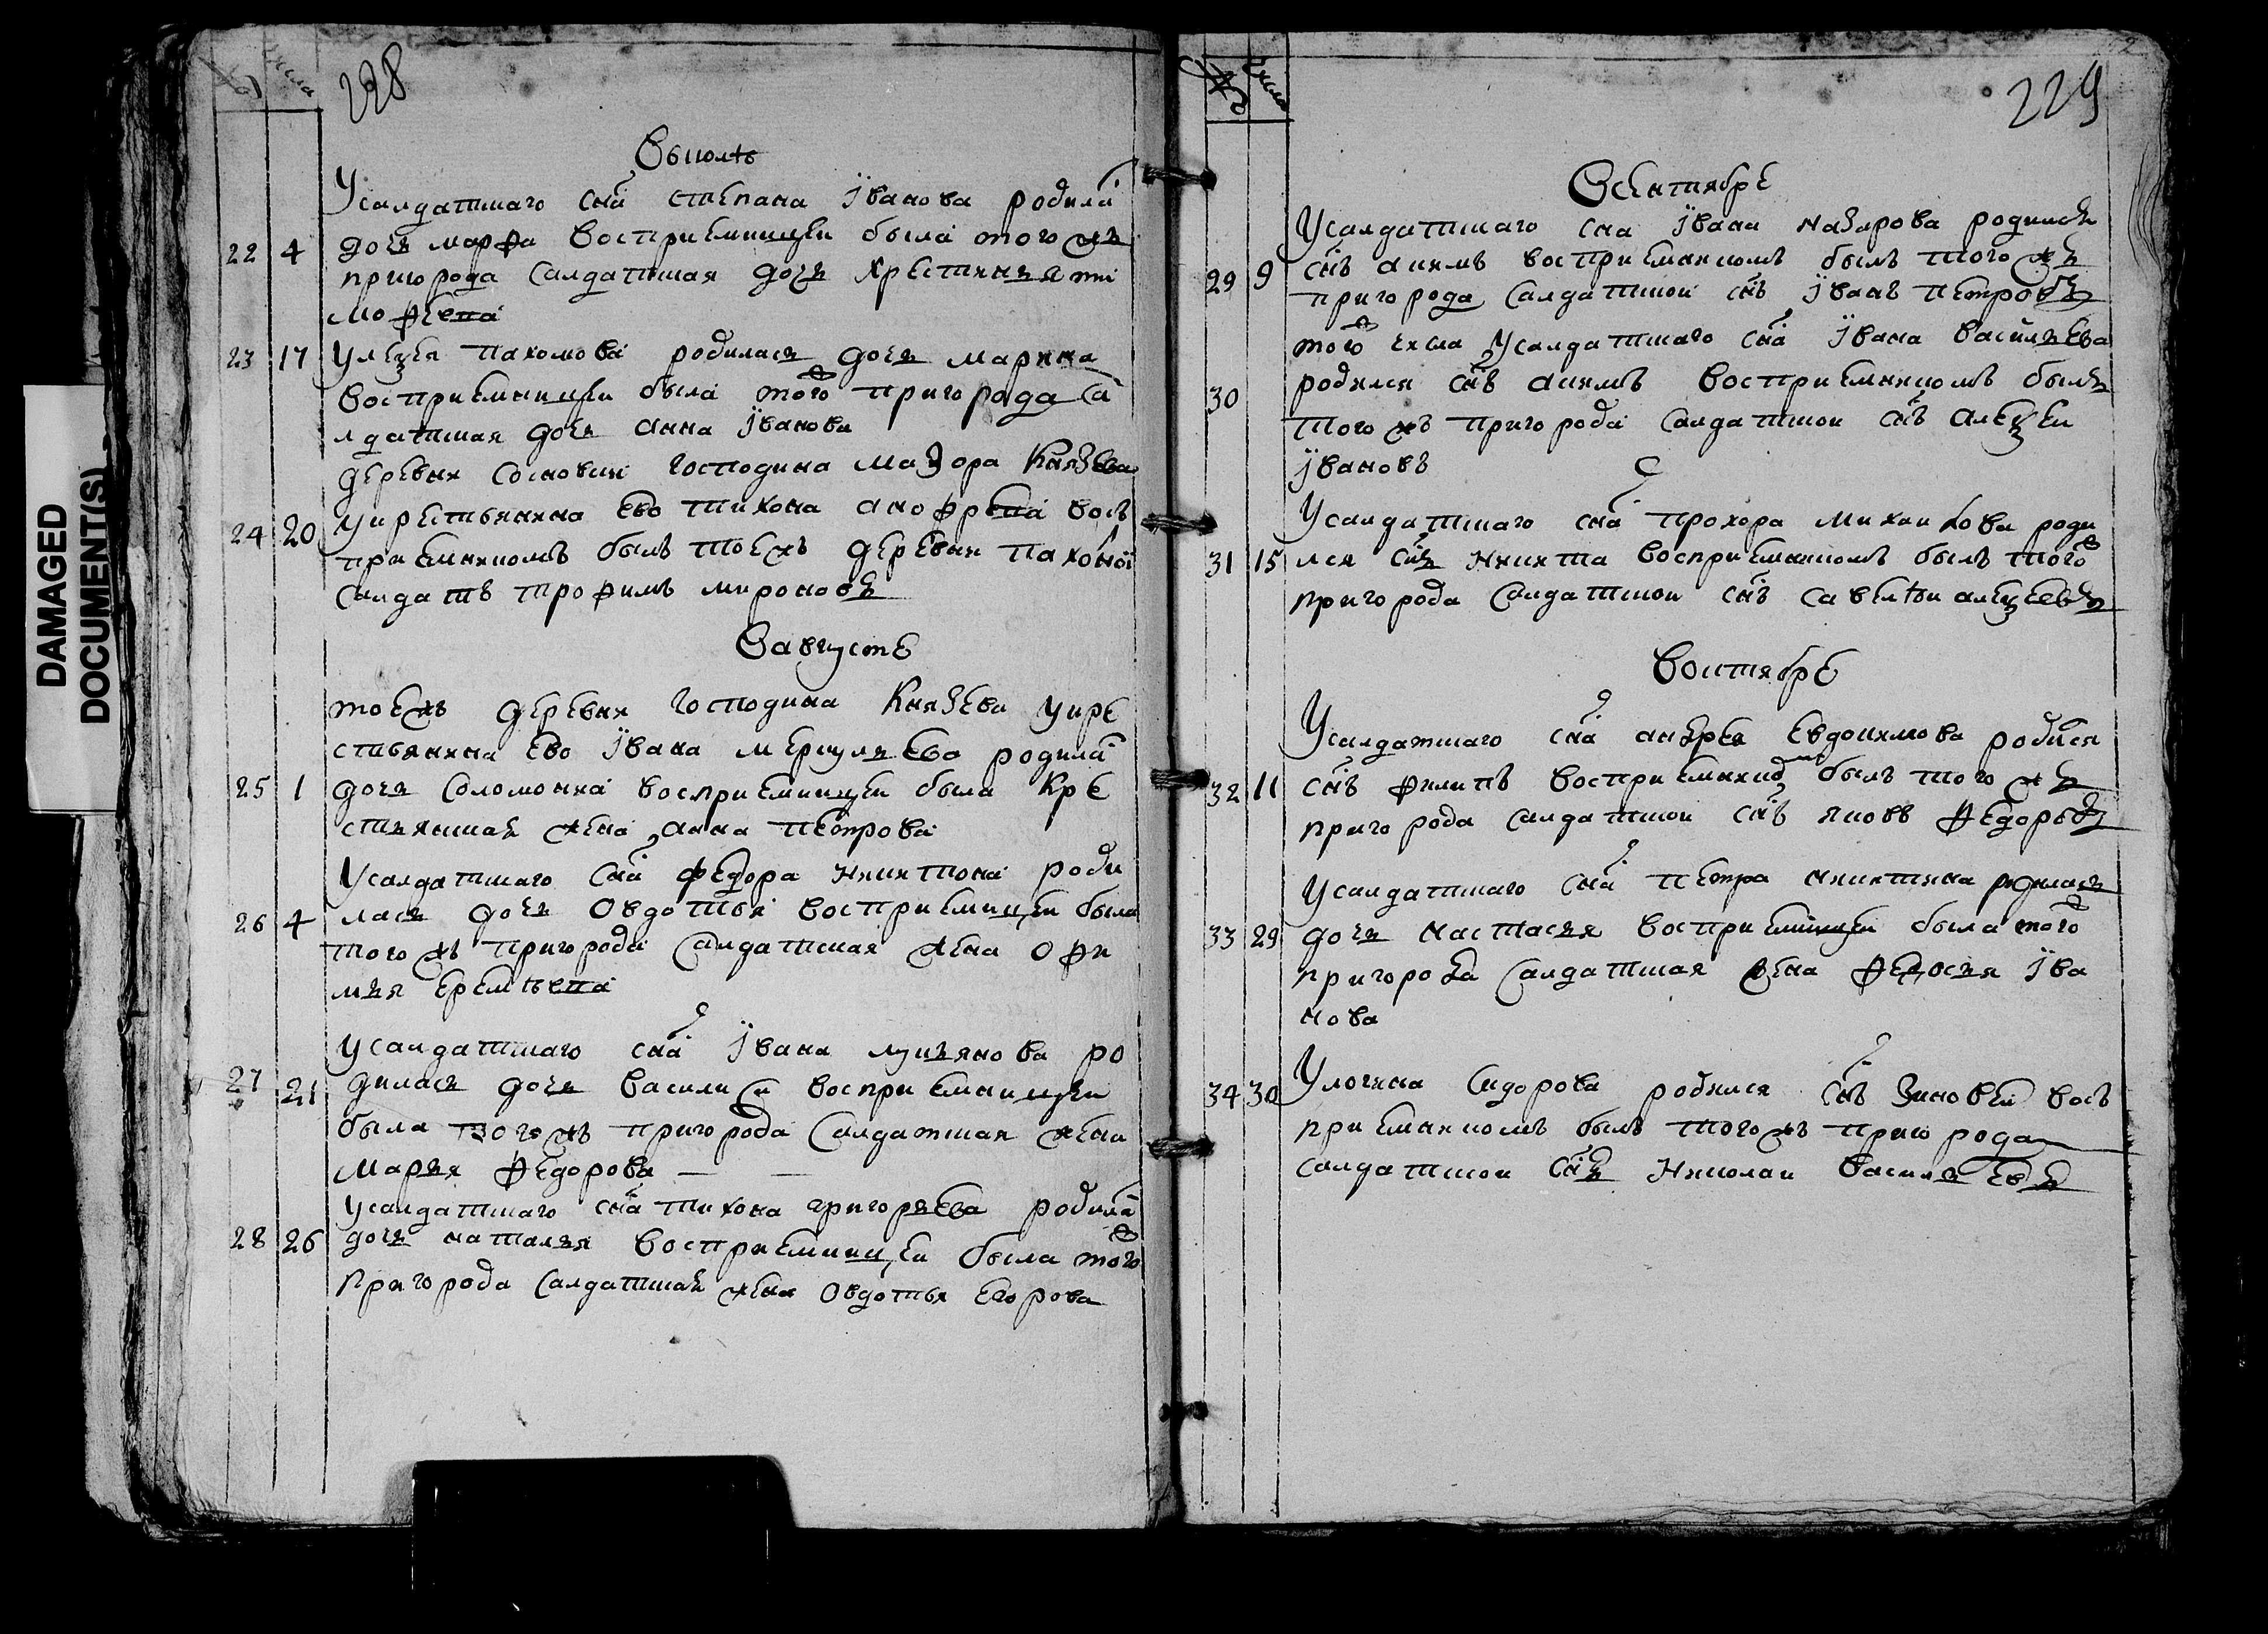 № числа
228
Въ июлѣ
У салдатцкаго сна степана Їванова родила
22 4 дочь марфа восприемницеи была того жъ
пригорода салдатцкая дочь христинья ти
мофеева
23 17 У алеѯея пахомова родилась дочь марина
восприемницеи была того пригорода са
лдатцкая дочь анна Їванова
деревни сосновки господина маэора Князева
24 20 у крестьянина ево тихона анофрева вось
приемникомъ былъ тоежъ деревни
салдатъ трофимъ мироновъ
В августе
тоежъ деревни господина Князева у кре
стьянина ево Ївана меркульева родила
25 1 дочь соломонида восприемницеи была кре
стьянская жена анна петрова
У салдатцкаго сна федора никитина роди
26 4 лась дочь овдотья восприемницеи была
того жъ пригорода салдатцкая жена офи
мья еремѣева
У салдатцкаго сна Ївана лукьянова ро
27 21 дилась дочь василиса восприемницеи
была того жъ пригорода салдатцкая жена
марья федорова
У салдатцкаго сна тихона григорьева родила
28 26 дочь наталья восприемницеи была того
пригорода салдатцкая жена овдотья егорова
DAMAGED
DOCUMENT(S)
№ числа
229
В сентябре
У салдатцкаго сна Ївана назарова родился
29 9 снъ акимъ восприемникомъ былъ того жъ
пригорода салдатцкои снъ Їванъ петровъ
того числа у салдатцкаго сна Ївана васильева
30 родился снъ акимъ восприемникомъ былъ
того жъ пригорода салдатцкои снъ алеѯеи
Ївановъ
У салдатцкаго сна прохора михаилова роди
31 15 лся снъ никита восприемникомъ былъ того
пригорода салдатцкои снъ савелѣи алеѯеевъ
В октябре
У салдатцкаго сна андрея евдокимова родился
32 11 снъ филипъ восприемникомъ былъ того жъ
пригорода салдатцкои снъ яковъ федоровъ
У салдатцкаго сна петра никитина родилась
33 29 дочь настасья восприемницеи была того
пригорода салдатцкая жена федосья Їва
нова
34 30 У логина сидорова родился снъ зиновеи вось
приемникомъ былъ того жъ пригорода
салдатцкои снъ николаи васильевъ